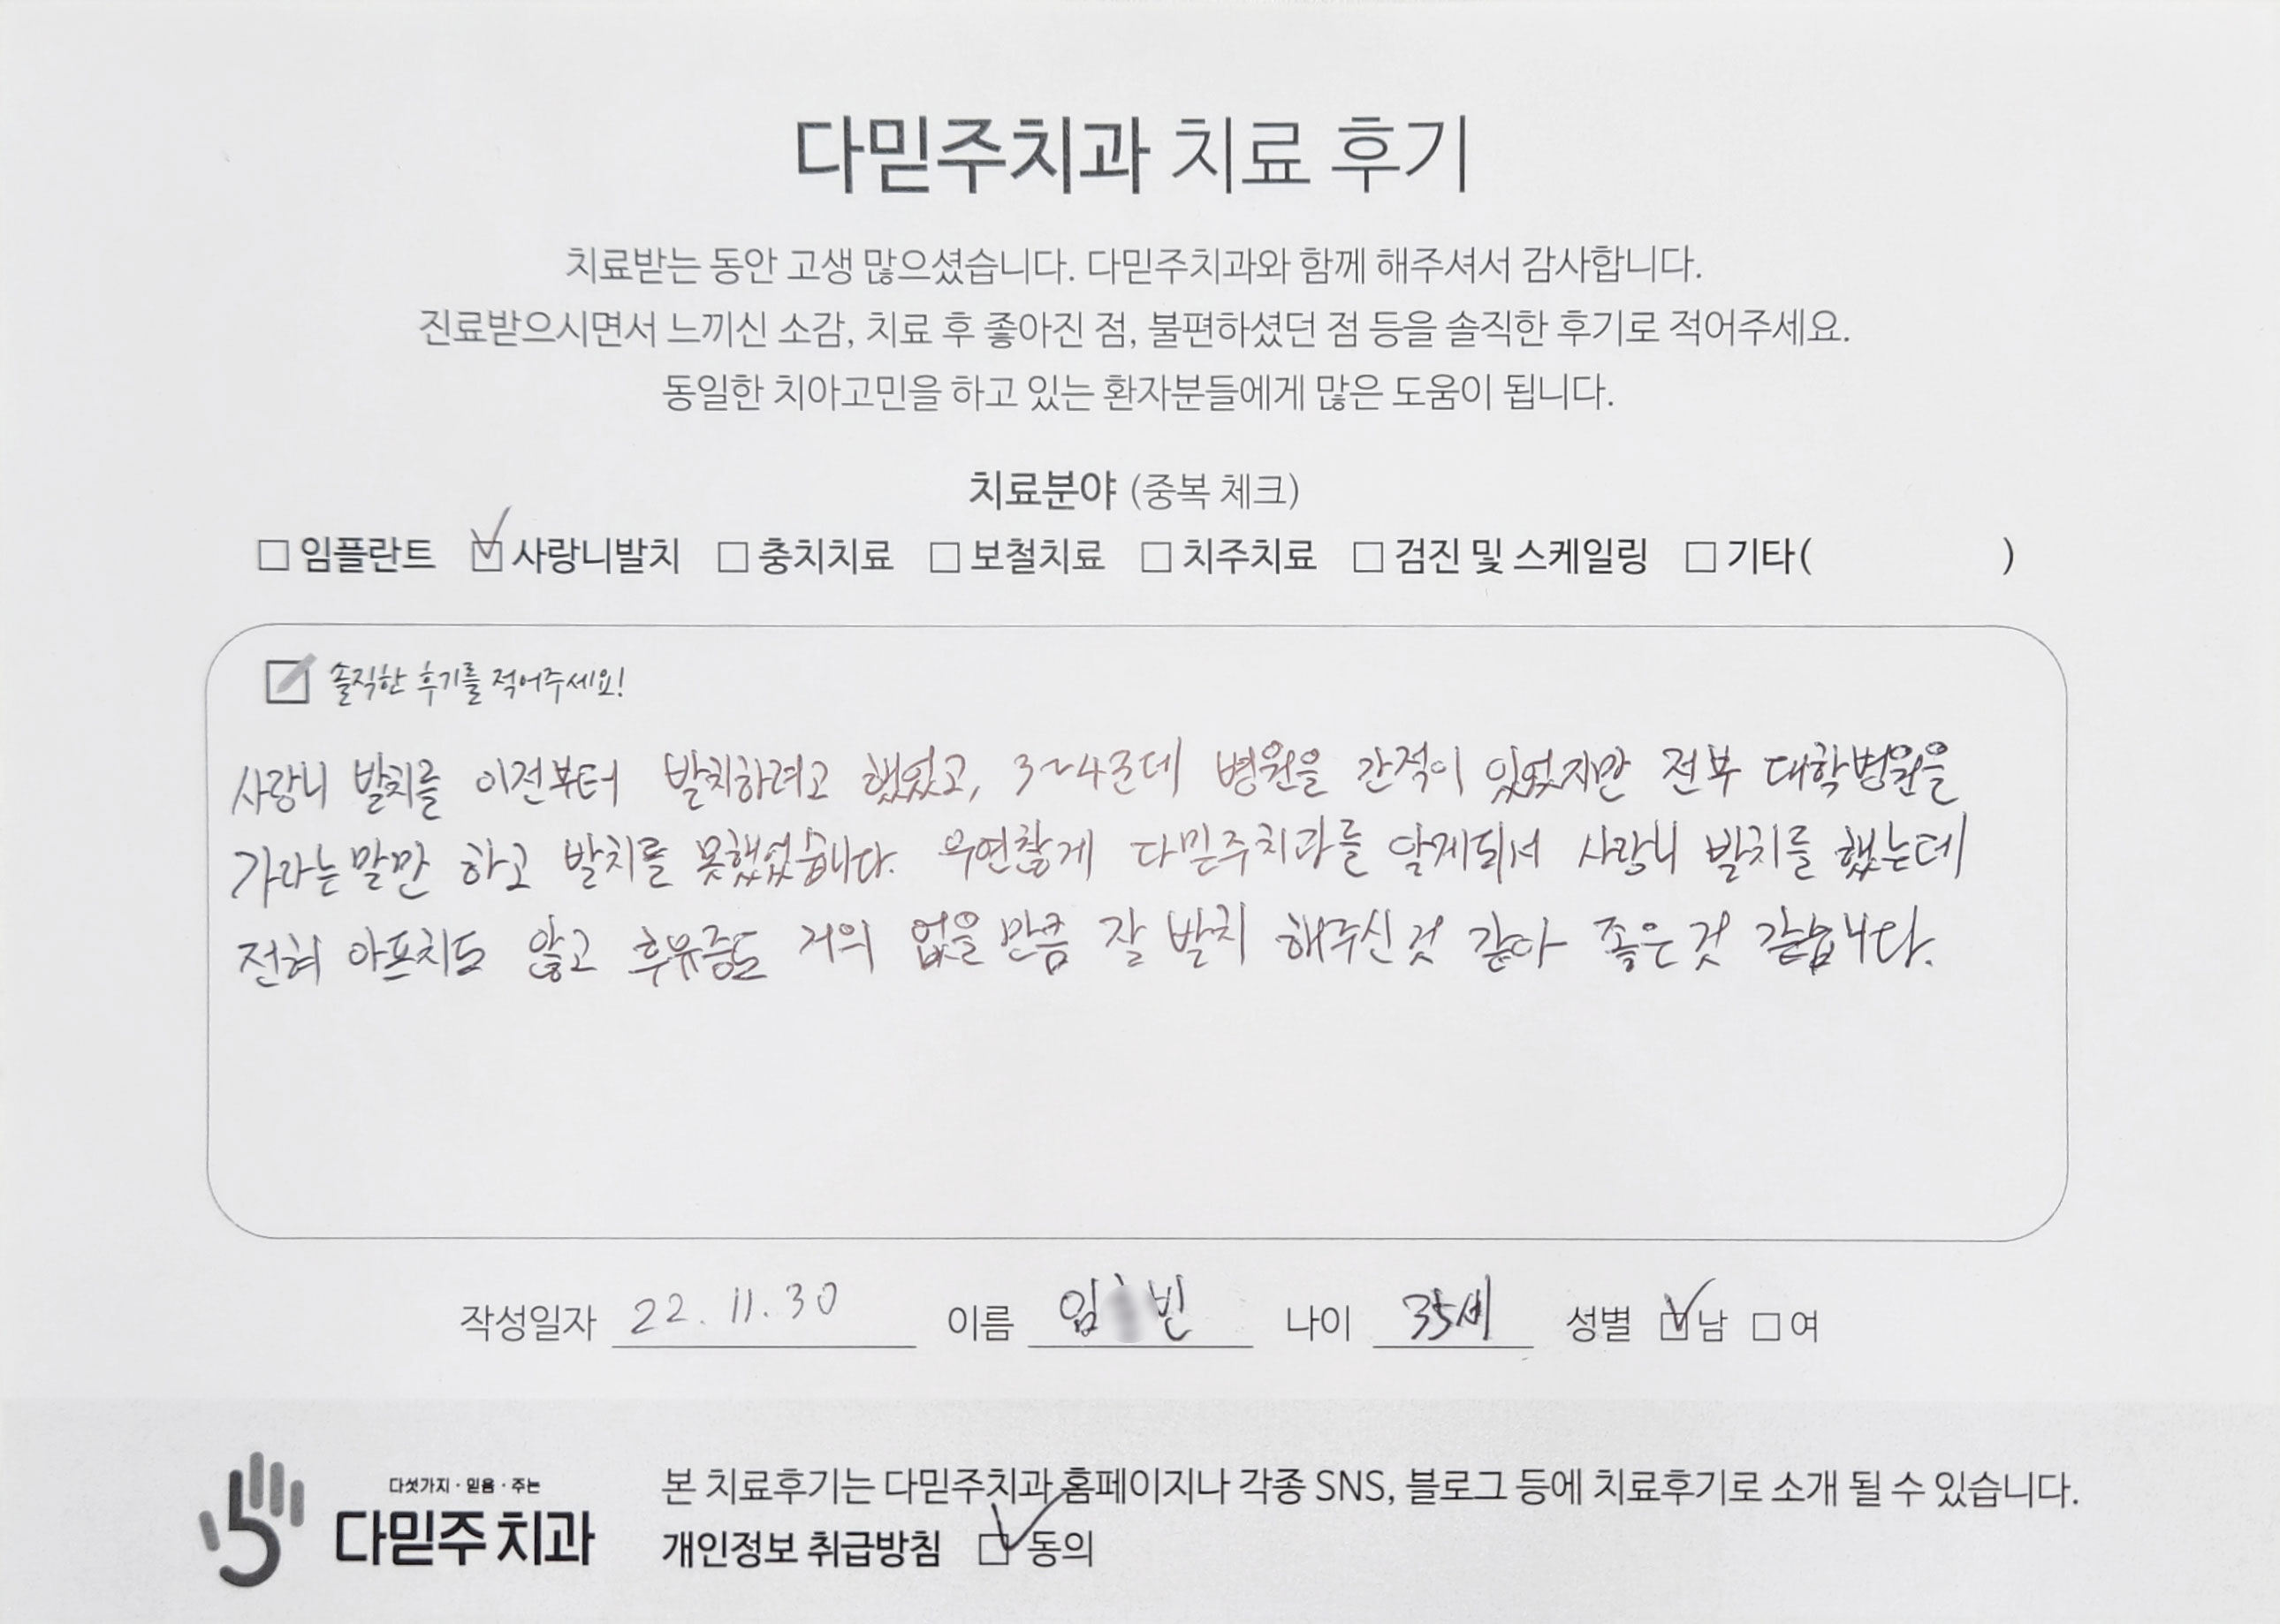 다믿주치과 치료 후기
치료받는 동안 고생 많으셨습니다. 다믿주치과와 함께 해주셔서 감사합니다.
진료받으시면서 느끼신 소감, 치료 후 좋아진 점, 불편하셨던 점 등을 솔직한 후기로 적어주세요.
동일한 치아고민을 하고 있는 환자분들에게 많은 도움이 됩니다.
치료분야 (중복 체크)
□ 임플란트 ☑ 사랑니발치 □ 충치치료 □ 보철치료 □ 치주치료 □ 검진 및 스케일링 □ 기타( )
솔직한 후기를 적어주세요!
사랑니 발치를 이전부터 발치하려고 했었고, 3~4군데 병원을 간적이 있었지만 전부 대학병원을
가라는 말만 하고 발치를 못했었습니다. 우연찮게 다믿주치과를 알게되서 사랑니 발치를 했는데
전혀 아프치도 않고 후유증도 거의 없을 만큼 잘 발치 해주신것 같아 좋은것 같습니다.
작성일자 22. 11. 30 이름 임 빈 나이 35세 성별 ☑ 남 □ 여
다섯가지 · 믿음 · 주는
다믿주 치과
본 치료후기는 다믿주치과 홈페이지나 각종 SNS, 블로그 등에 치료후기로 소개 될 수 있습니다.
개인정보 취급방침 ☑ 동의